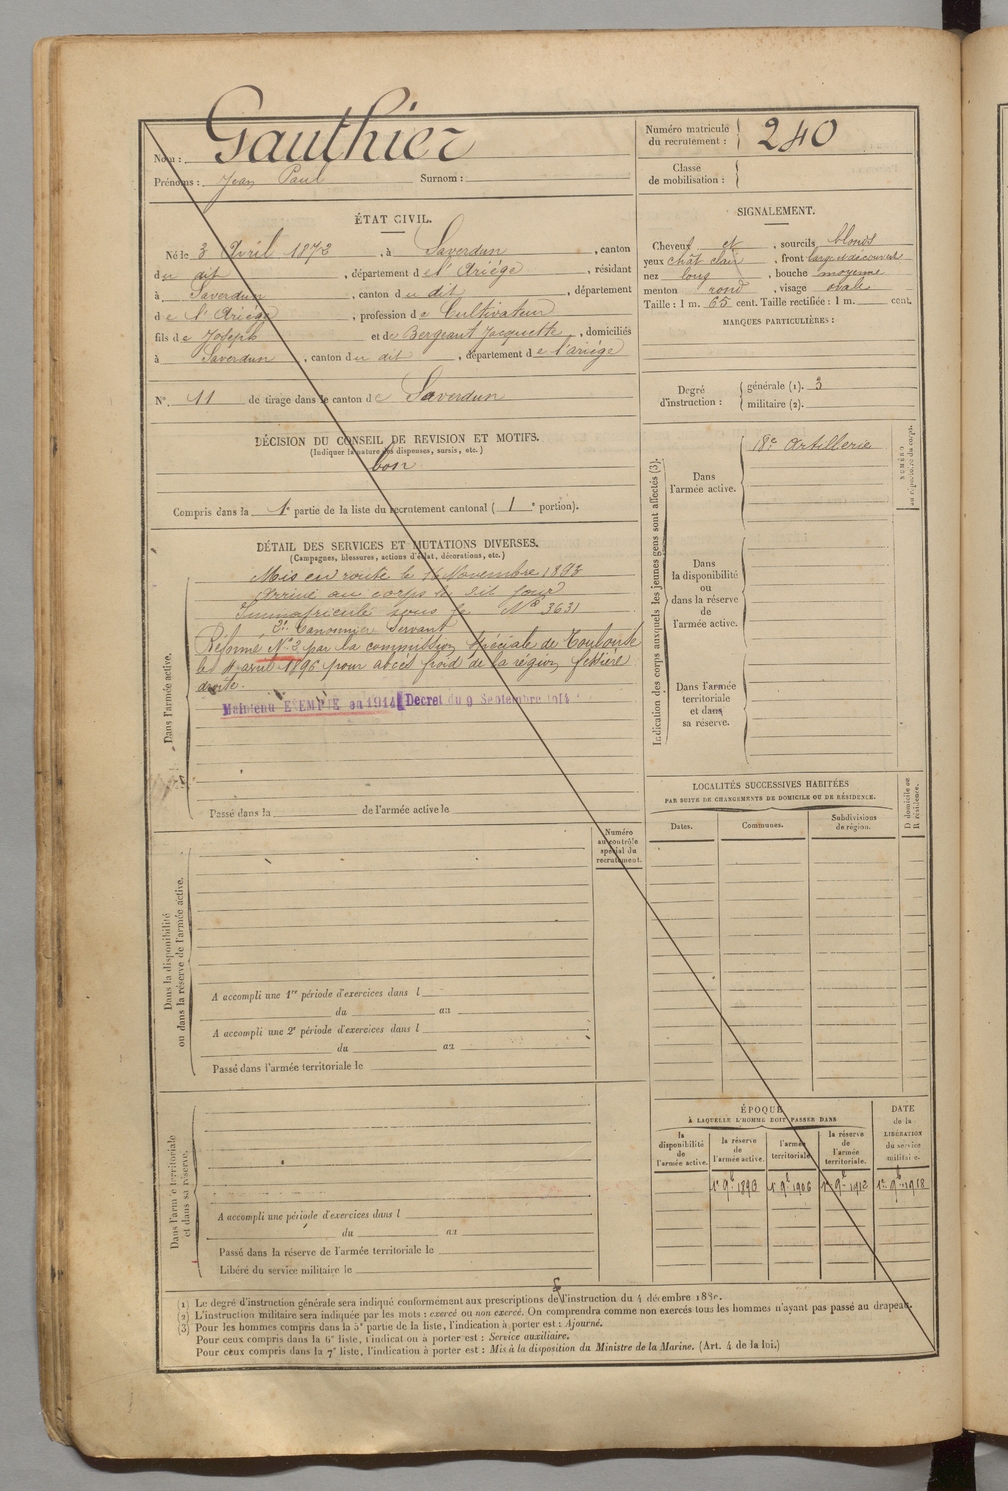 Nom : Gauthier
Prénoms : Jean Paul Surnom :
Numéro matricule du recrutement : 240
Classe de mobilisation :
ÉTAT CIVIL.
Né le 3 Avril 1872, à Saverdun, canton
du dit, département de l'Ariége, résidant
à Saverdun, canton du dit, département
de l'Ariége, profession de Cultivateur
fils de Joseph et de Bergeaut Jacquette, domiciliés
à Saverdun, canton du dit, département de l'ariége
N° 11 de tirage dans le canton de Saverdun
DÉCISION DU CONSEIL DE REVISION ET MOTIFS.
(Indiquer la nature des dispenses, sursis, etc.)
bon
Compris dans la 1e partie de la liste du recrutement cantonal (1e portion).
SIGNALEMENT.
Cheveux et, sourcils blonds
yeux chât clair, front large et découvert
nez long, bouche moyenne
menton rond, visage ovale
Taille : 1 m. 65 cent. Taille rectifiée : 1 m. cent.
MARQUES PARTICULIÈRES :
Degré d'instruction : générale (1). 3
militaire (2).
DÉTAIL DES SERVICES ET MUTATIONS DIVERSES.
(Campagnes, blessures, actions d'éclat, décorations, etc.)
Dans l'armée active.
Mis en route le 16 Novembre 1893
Arrivé au corps le dit jour
Immatriculé sous le N° 3631
2e Canonnier Servant
Réformé N° 2 par la commission spéciale de Toulouse
le 4 avril 1896 pour abcès froid de la région fessière
droite.
Maintenu EXEMPTÉ en 1914 Decret du 9 Septembre 1914
Passé dans la de l'armée active le
Indication des corps auxquels les jeunes gens sont affectés (3).
Dans l'armée active.
18e Artillerie
NUMÉRO au répertoire du corps.
Dans la disponibilité ou dans la réserve de l'armée active.
Dans l'armée territoriale et dans sa réserve.
LOCALITÉS SUCCESSIVES HABITÉES
PAR SUITE DE CHANGEMENTS DE DOMICILE OU DE RÉSIDENCE.
Dates. Communes. Subdivisions de région. D domicile ou R résidence.
Numéro au contrôle spécial du recrutement.
Dans la disponibilité
ou dans la réserve de l'armée active.
A accompli une 1re période d'exercices dans l
du au
A accompli une 2e période d'exercices dans l
du au
Passé dans l'armée territoriale le
Dans l'armée territoriale
et dans sa réserve.
A accompli une période d'exercices dans l
du au
Passé dans la réserve de l'armée territoriale le
Libéré du service militaire le
ÉPOQUE
À LAQUELLE L'HOMME DOIT PASSER DANS
la disponibilité de l'armée active. la réserve de l'armée active. l'armée territoriale. la réserve de l'armée territoriale.
DATE de la LIBÉRATION du service militaire.
1er 9b 1893 1er 9b 1906 1er 9b 1912 1er 9b 1918
(1) Le degré d'instruction générale sera indiqué conformément aux prescriptions de l'instruction du 4 décembre 1889.
(2) L'instruction militaire sera indiquée par les mots : exercé ou non exercé. On comprendra comme non exercés tous les hommes n'ayant pas passé au drapeau.
(3) Pour les hommes compris dans la 5e partie de la liste, l'indication à porter est : Ajourné.
Pour ceux compris dans la 6e liste, l'indication à porter est : Service auxiliaire.
Pour ceux compris dans la 7e liste, l'indication à porter est : Mis à la disposition du Ministre de la Marine. (Art. 4 de la loi.)